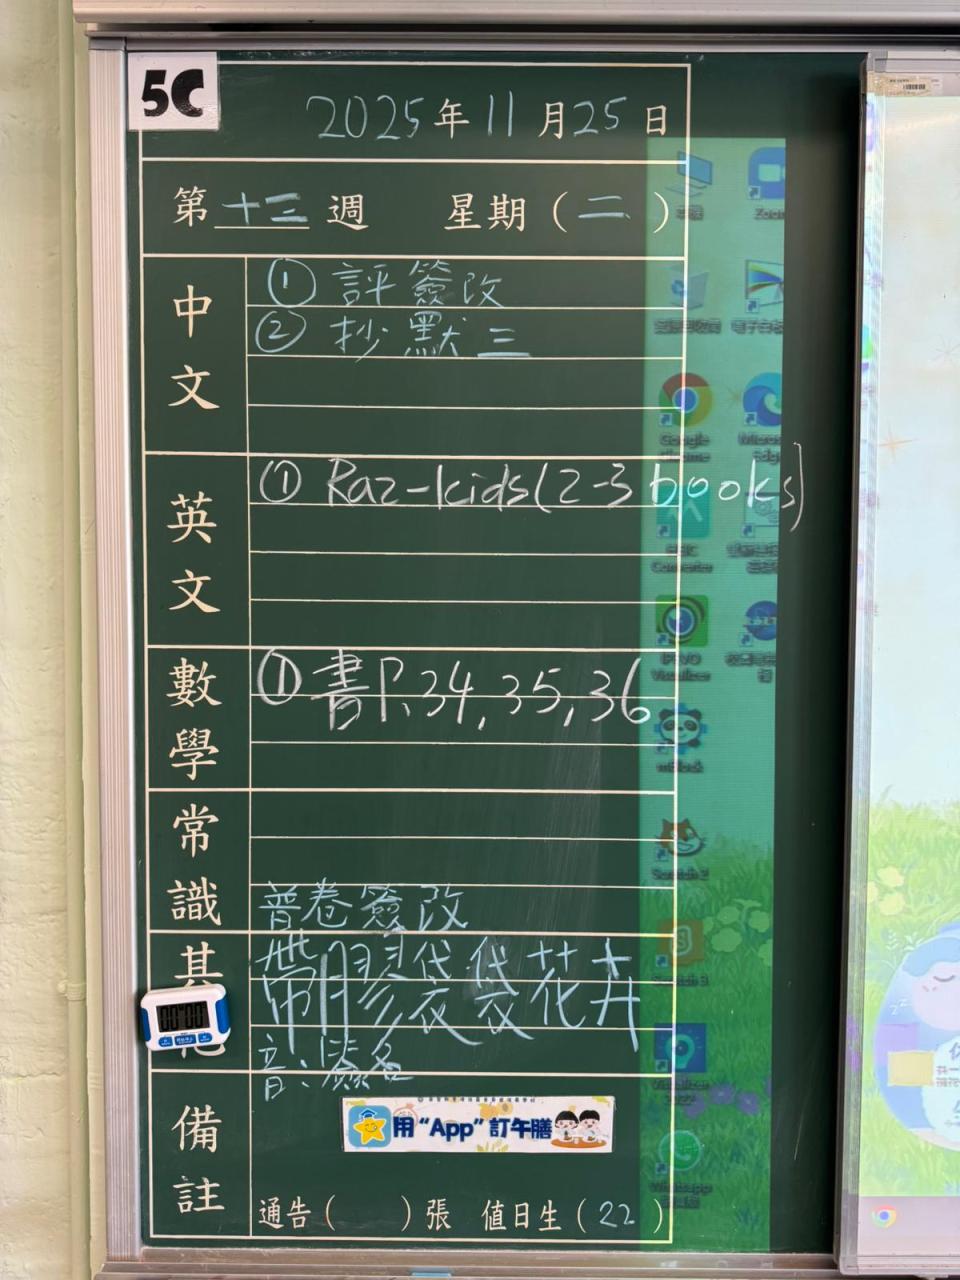 5C
2025年11月25日
第十三週 星期(二)
中文
① 評簽改
② 抄默三
英文
① Raz-kids(2-3 books)
數學
① 書P.34,35,36
常識
普卷簽改
其
帶膠袋袋花卉
音:簽名
備註
用“App”訂午膳
通告( )張 值日生(22)
Zoom
Google Chrome
Converter
IPEVO Visualizer
mBlock
Scratch 2
Scratch 3
Visualizer
Whatsapp